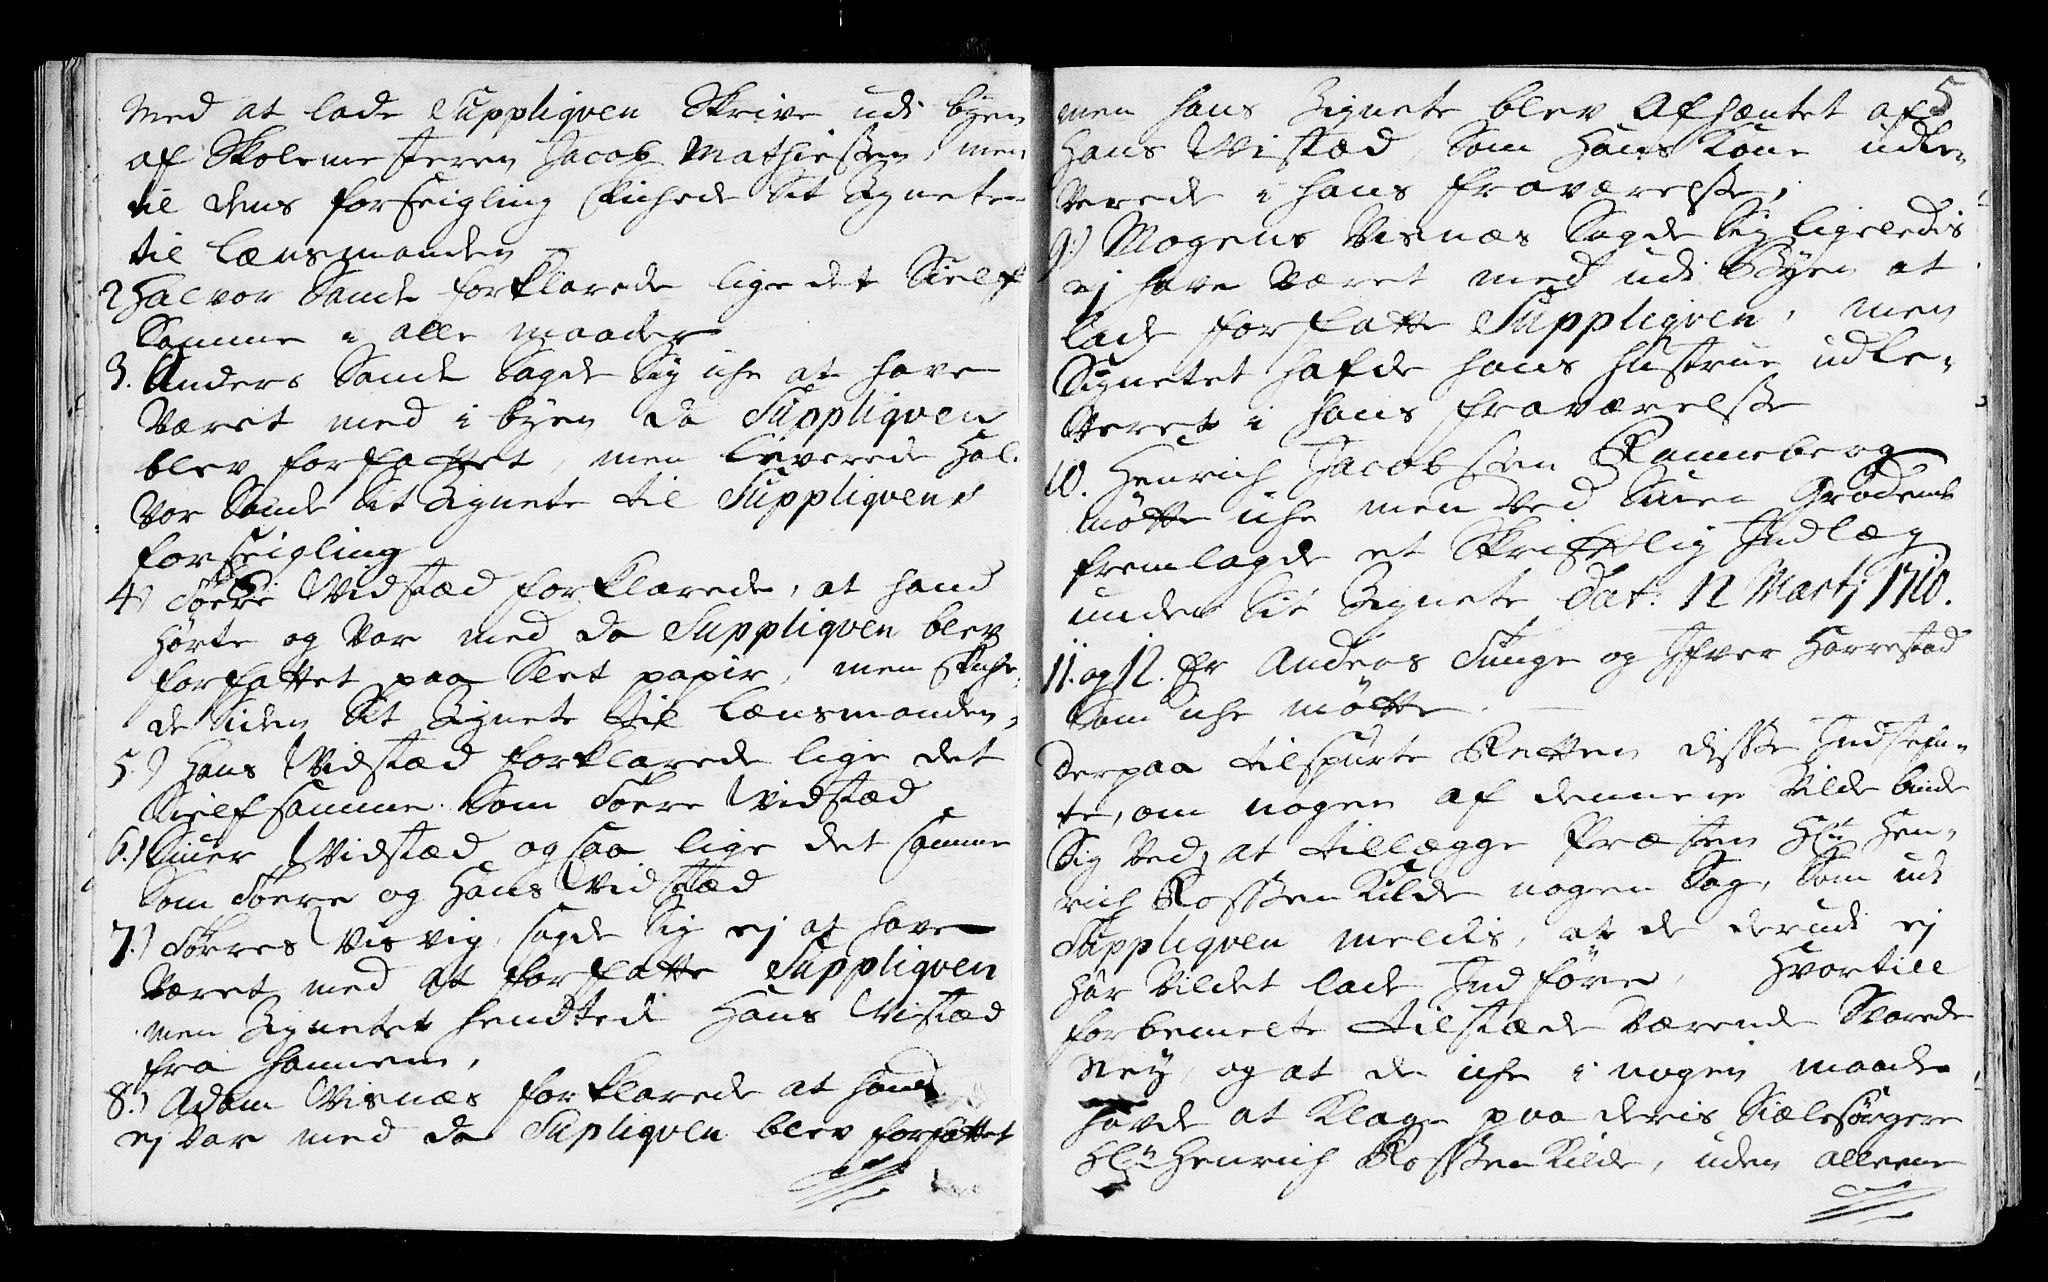 Med at lade Suppliqven Skrive udi byen
af Skolemesteren Jacob Mathiessen, men
til dens forseigling skichede sit Zignete
til Lænsmanden
2 Halvor Sande forklarede lige det Sielf
Samme i alle maader
3. Anders Sande sagde sig iche at have
Været med i byen da Suppliqven
blev forfattet, men leverede Hal.
vor Sande sit Zignete til Suppliqvens
forseigling
4) Toere Vidstæd forklarede, at hand
hørte og var med da Suppliqven blev
forfattet paa slet papir, men skiche,
de siden sit Zignete til Lænsmanden,
5.) Hans Vidstæd forklarede lige det
Sielfsamme som Toere Vidstæd
6.) Siuer Vidstæd ogsaa lige det samme
som Toere og Hans Vidstæd
7.) Tørres Visvig, sagde sig ej at have
Været med at forfatte Suppliqven
men Zignetet hendtede Hans Vistæd
fra hannem,
8.) Adam Visnæs forklarede at hand
ej var med da Supliqven blev forfattet
5
men hans Zignete blev afhæntet af
Hans Vistæd, som hans Kone udle,
verede i hans fraværelsse,
9.) Mogens Visnæs sagde sig ligeledis
ej have været med udi Byen at
lade forfatte Suppliqven, men
Signetet hafde hans hustrue udle,
veret i hans fraværelsse
10. Henrich Jacobsen Ranneberg
møtte iche men ved Siuer Grødem
fremlagde et Skrifftlig Indlæg
under sit Zignete dat: 12 Martj 1720.
11. og 12. Er Anders Tunge og Ifver Harrestad
som iche møtte.
Derpaa tilspurte Retten disse Indstefn,
te, om nogen af dennem vilde binde
sig ved, at tillægge Præsten Hr Hen,
rich Rossenkilde nogen Sag, som udi
Suppliqven meldis, at de derudi ej
har vildet lade Indføre, Hvortill
forbemelte tilstæde værende svarede
Ney, og at de iche i nogen maade
hafde at klage paa deris Siælesørgere
Hr Henrich Rossenkilde, uden alleene